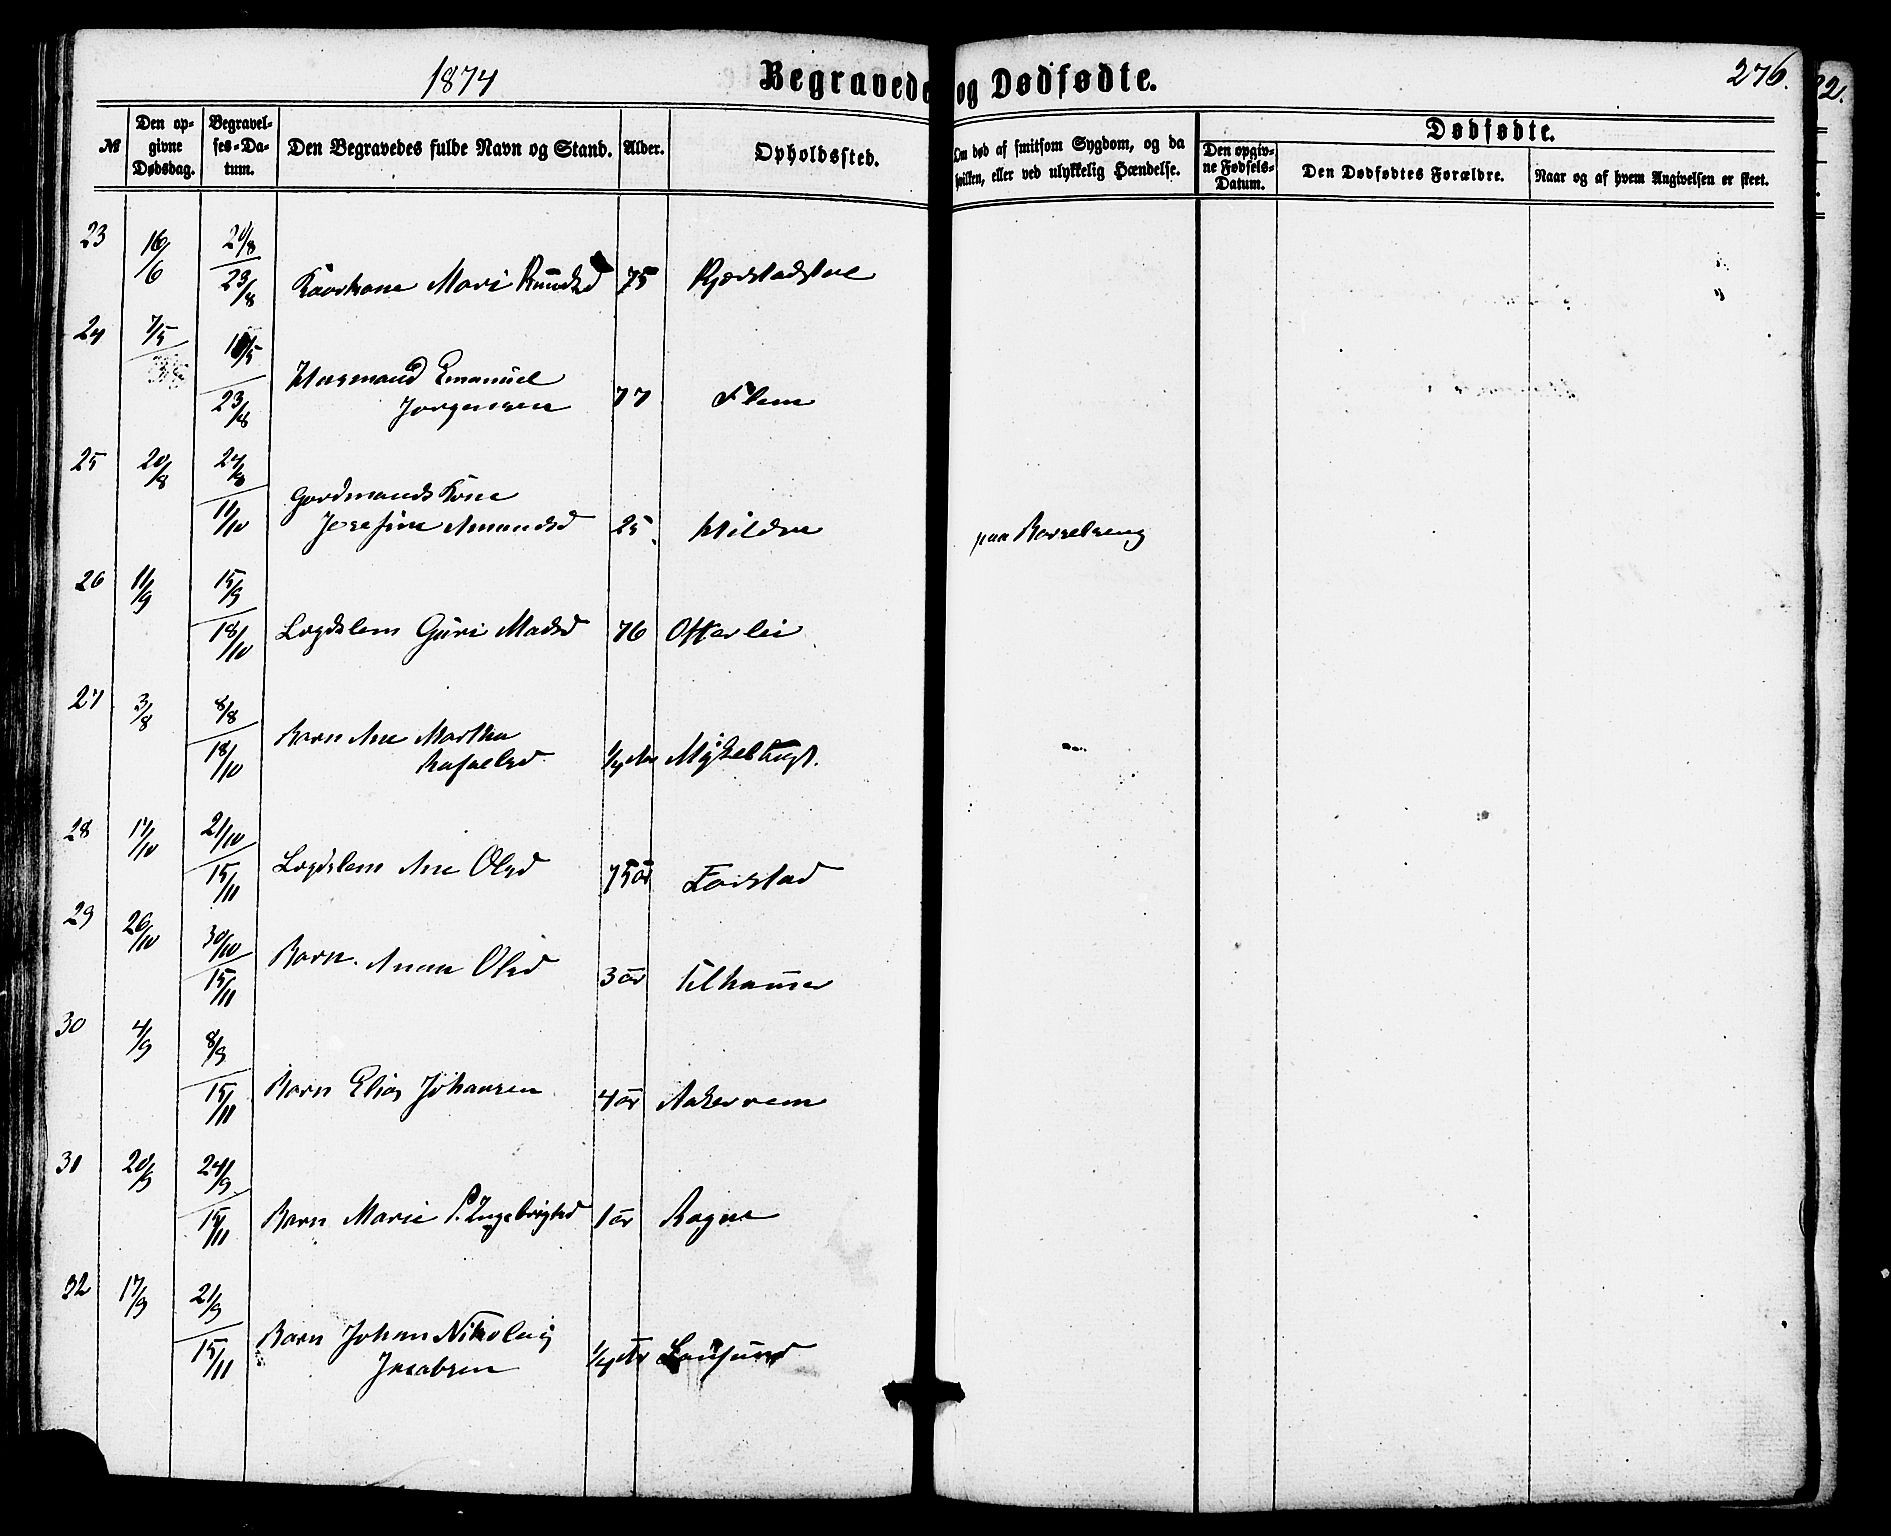 1874 Begravede og Dødfødte. 276.
№ Den opgivne Dødsdag. Begravelses-Datum. Den Begravedes fulde Navn og Stand. Alder. Opholdssted. Om død af smitsom Sygdom, og da hvilken, eller ved ulykkelig Hændelse. Dødfødte.
Den opgivne Fødsels-Datum. Den Dødfødtes Forældre. Naar og af hvem Angivelsen er skeet.
23 16/6 20/8
23/8 Kaarkone Mari Knudsd 75
24 7/5 10/5
23/8 Huusmand Emanuel
Jørgensen 77 Flem
25 20/8 24/8
11/10 Gaardmands Kone
Josefine Amundsd 25 Hildre paa Barselseng
26 11/9 15/9
18/10 Lægdslem Guri Madsd 76 Otterlei
27 3/8 8/8
18/10 Barn Ane Martha
Rafaelsd 1/4 Aar Myklebust.
28 17/10 21/10
15/11 Lægdslem Ane Olsd 75 år Farstad
29 26/10 30/10
15/11 Barn Anne Olsd 3 år
30 4/9 8/9
15/11 Barn Elias Johansen 4 år Aakerrem
31 20/9 24/9
15/11 Barn Marie P. Ingebrigtsd 1 år Rogne
32 17/9 21/9
15/11 Barn Johan Nikolai
Jacobsen 1/4 Aar Longsund